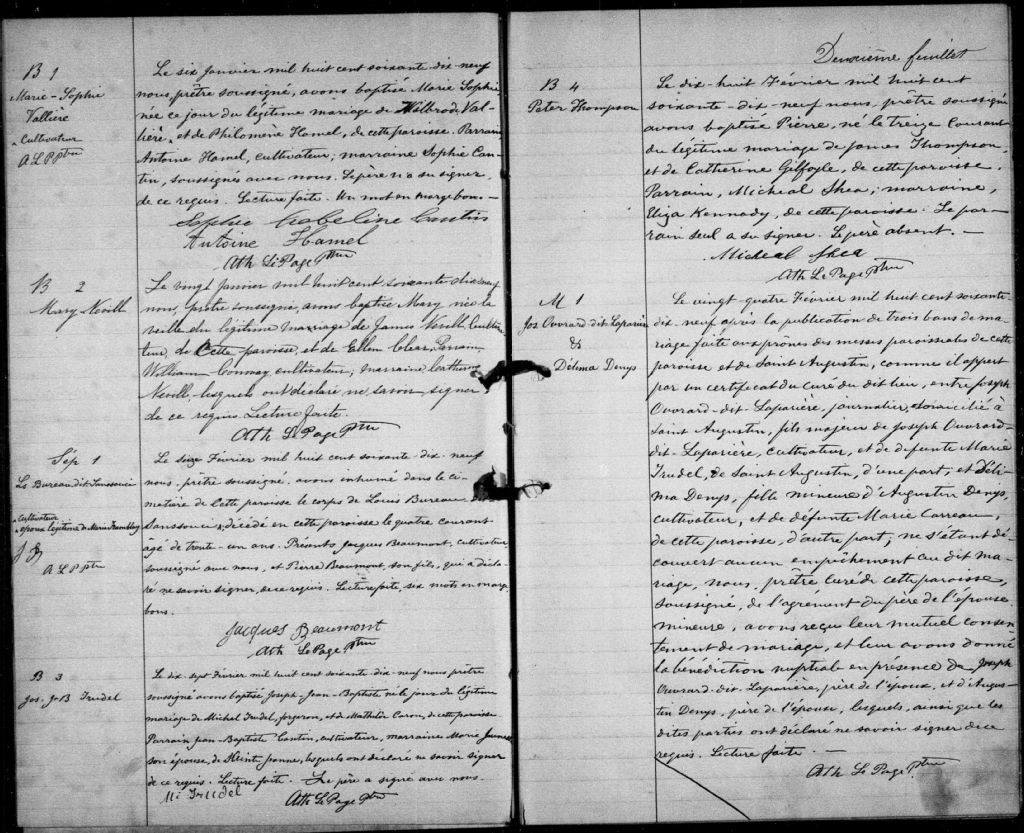 B 1
Marie-Sophie
Vallière
Cultivateur
A L P ptre
Le six Janvier mil huit cent soixante dix-neuf
nous, prêtre soussigné, avons baptisé Marie Sophie
née ce jour du légitime mariage de Wilbrod Val-
lière, et de Philomène Hamel, de cette paroisse. Parrain
Antoine Hamel, cultivateur; marraine Sophie Can-
tin, soussignés avec nous. Le père n'a su signer,
de ce requis. Lecture faite. Un mot en marge bon.—
Sophie Cantin
Antoine Hamel
Ath LePage Ptre
B 2
Mary Nevill
Le vingt Janvier mil huit cent soixante dix neuf
nous, prêtre soussigné, avons baptisé Mary, née la
veille du légitime marriage de James Nevill, Cultiva-
teur, de Cette paroisse, et de Ellen Parrain,
William Conway, cultivateur, marraine Catherine
Nevill, lesquels ont déclaré ne savoir signer
de ce requis. Lecture faite.
Ath LePage Ptre
Sép. 1
Ls Bureau dit Sanssouci
cultivateur
époux légitime de Marie Tremblay
A L P ptre
Le seize Février mil huit cent soixante-dix-neuf
nous prêtre soussigné avons inhumé dans le ci-
metière de Cette paroisse le corps de Louis Bureau
Sanssouci, décédé en cette paroisse le quatre courant
âgé de trente-un ans. Présents, Jacques Beaumont, cultivateur,
soussigné avec nous, et Pierre Beaumont, son fils, qui a décla-
ré ne savoir signer, de ce requis. Lecture faite, six mots en marge
bons.
Jacques Beaumont
Ath LePage Ptre
B 3
Jos. J.B Trudel
Le dix sept Février mil huit cent soixante-dix-neuf nous prêtre
soussigné avons baptisé Joseph-Jean-Baptiste né le jour du légitime
mariage de Michel Trudel, forgeron, et de Mathilde Caron, de cette paroisse.
Parrain Jean-Baptiste Cantin, cultivateur, marraine Marie
son épouse, de lesquels ont déclaré ne savoir signer
de ce requis. Lecture faite. Le père a signé avec nous.
Mi Trudel
Ath LePage Ptre
Deuxième feuillet
B 4
Peter Thompson
Le dix-huit Février mil huit cent
soixante-dix-neuf nous, prêtre soussigné
avons baptisé Pierre, né le treize Courant
du légitime mariage de James Thompson,
et de Catherine Gilfoyle, de cette paroisse.
Parrain, Micheal Shea; marraine,
Eliza Kennedy, de cette paroisse. Le par-
rain seul a su signer. Le père absent.—
Micheal Shea
Ath LePage Ptre
M 1
Jos Ouvrard dit Laparière
&
Délima Denys
Le vingt quatre Février mil huit cent soixante-
dix-neuf après la publication de trois bans de ma-
riage faite aux prônes des messes paroissiales de cette
paroisse et de Saint Augustin, comme il appert
par un certificat du curé du dit lieu, entre Joseph
Ouvrard-dit-Laparière, journalier, domicilié à
Saint Augustin, fils majeur de Joseph Ouvrard-
dit-Laparière, cultivateur, et de défunte Marie
Trudel, de Saint Augustin, d'une part, et Déli-
ma Denys, fille mineure d'Augustin Denys,
cultivateur, et de défunte Marie Carreau,
de cette paroisse, d'autre part; ne s'étant dé-
couvert aucun empêchement au dit ma-
riage, nous, prêtre curé de cette paroisse,
soussigné, de l'agrément du père de l'épouse
mineure, avons reçu leur mutuel consen-
tement de mariage, et leur avons donné
la bénédiction nuptiale en présence de Joseph
Ouvrard-dit-Laparière, père de l'époux, et d'Augus-
tin Denys, père de l'épouse, lesquels, ainsi que les
dites parties ont déclaré ne savoir signer de ce
requis. Lecture faite.—
Ath LePage Ptre